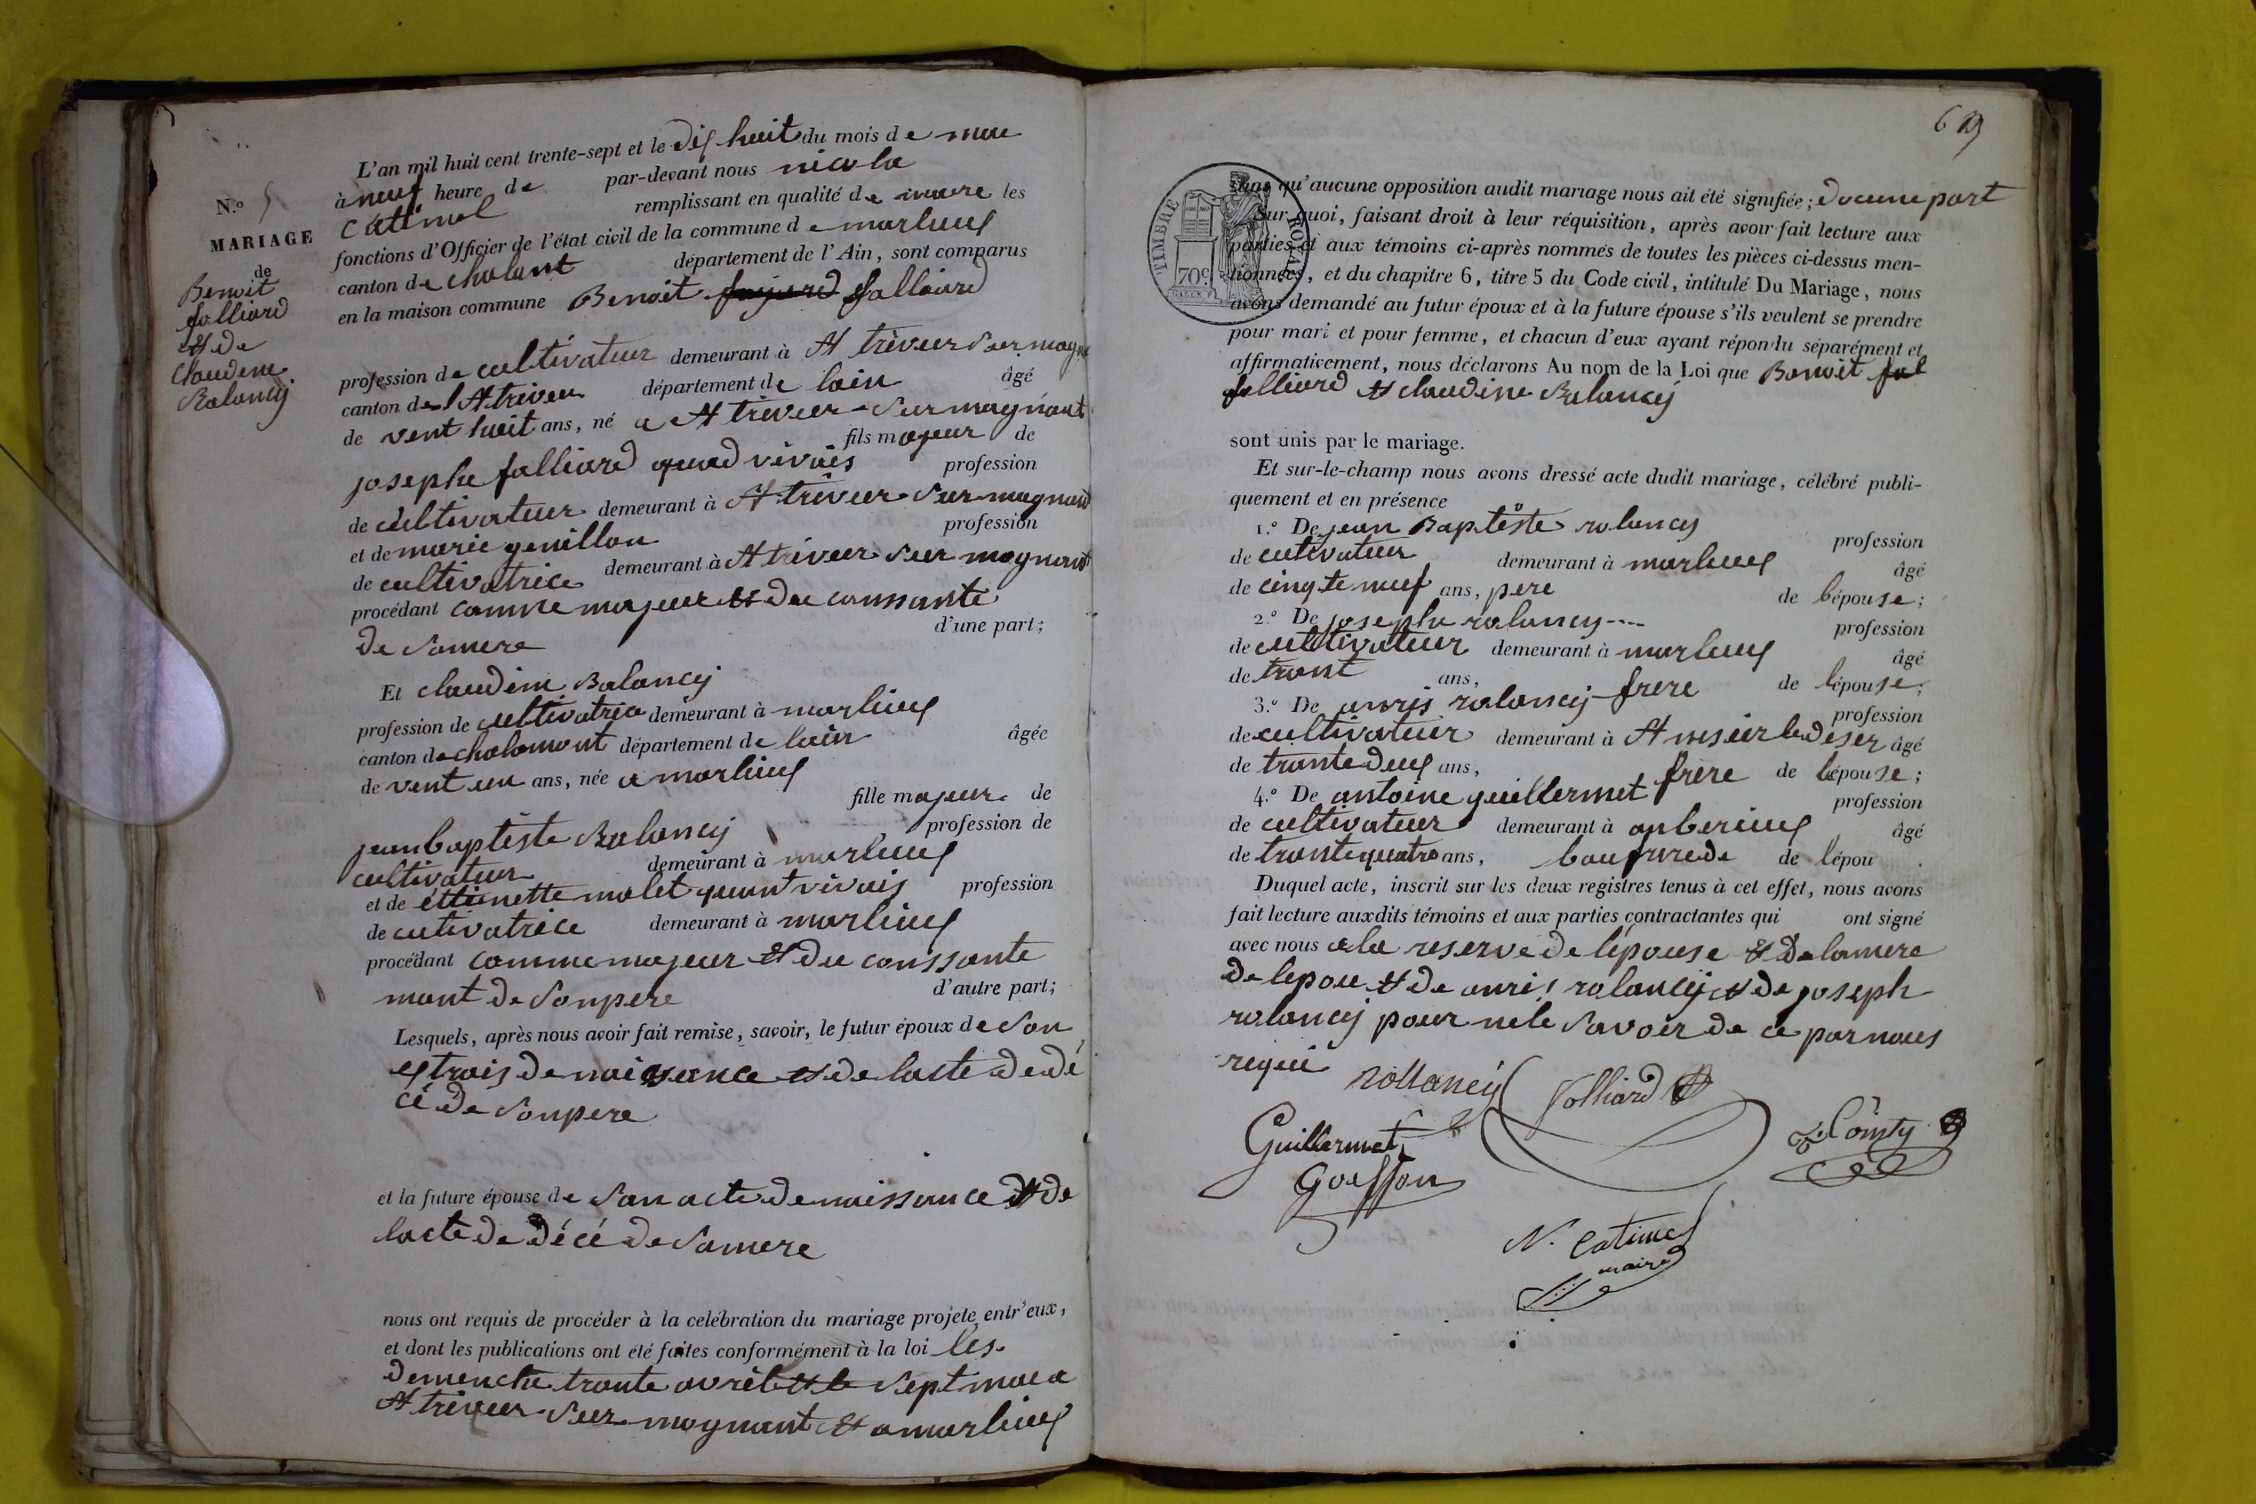 N.° 5
MARIAGE
de
Benoit
folliard
et de
Claudine
Rolancy
L'an mil huit cent trente-sept et le dix huit du mois de mae
à neuf heure de par-devant nous nicola
Catimel remplissant en qualité de maire les
fonctions d'Officier de l'état civil de la commune de marlieux
canton de chalamt département de l'Ain, sont comparus
en la maison commune Benoit folliard
profession de cultivateur demeurant à St trivier Sur mogn
canton de St trivier département de lain âgé
de vent huit ans, né a St trivier Sur mognant
fils majeur de
josephe folliard quand vivais profession
de cultivateur demeurant à St trivier Sur mognand
et de marie genillon profession
de cultivatrice demeurant à St trivier Sur mognant
procédant comme majeur et du conssante
de Samere d'une part;
Et claudine Rolancy
profession de cultivatrice demeurant à marlieux
canton de chalamont département de lain âgée
de vent un ans, née a marlieux
fille majeur de
jeanbaptiste Rolancy profession de
cultivateur demeurant à marlieux
et de ettienette molet quant vivais profession
de cutivatrice demeurant à marlieux
procédant comme majeur et du conssante
mant de Sonpere d'autre part;
Lesquels, après nous avoir fait remise, savoir, le futur époux de Son
extrais de naissance et de lacte de dé
cé de Sonpere
et la future épouse de Son acte de naissance et de
lacte de décé de Samere
nous ont requis de procéder à la celébration du mariage projeté entr'eux,
et dont les publications ont été faites conformément à la loi les
demenche trante avril et le sept mae a
St trivier Sur mognant et a marlieux
619
TIMBRE ROYAL
70c
sans qu'aucune opposition audit mariage nous ait été signifiée; docune part
Sur quoi, faisant droit à leur réquisition, après avoir fait lecture aux
parties et aux témoins ci-après nommés de toutes les pièces ci-dessus men-
tionnées, et du chapitre 6, titre 5 du Code civil, intitulé Du Mariage, nous
avons demandé au futur époux et à la future épouse s'ils veulent se prendre
pour mari et pour femme, et chacun d'eux ayant répondu séparément et
affirmativement, nous déclarons Au nom de la Loi que Benoit fol
folliard et claudine Rolancy
sont unis par le mariage.
Et sur-le-champ nous avons dressé acte dudit mariage, célébré publi-
quement et en présence
1.° De jean Baptiste rolancy profession
de cultivateur demeurant à marlieux âgé
de cinqte neuf ans, pere de lépouse;
2.° De josephe rolancy profession
de cultivateur demeurant à marlieux âgé
de trant ans, frere de lépouse;
3.° De anris rolancy profession
de cultivateur demeurant à St nisier le deser âgé
de trante deux ans, frere de lépouse;
4.° De antoine guillermet profession
de cultivateur demeurant à anberieux âgé
de trante quatre ans, baufrrede de lépou
Duquel acte, inscrit sur les deux registres tenus à cet effet, nous avons
fait lecture auxdits témoins et aux parties contractantes qui ont signé
avec nous a la reserve de lépouse et de lamere
de lepou et de anri rolancy et de joseph
rolancy pour ne le savoir de ce par nous
requi
rollancy folliard
Guillermet Comty
Goiffon
N. Catimel
maire